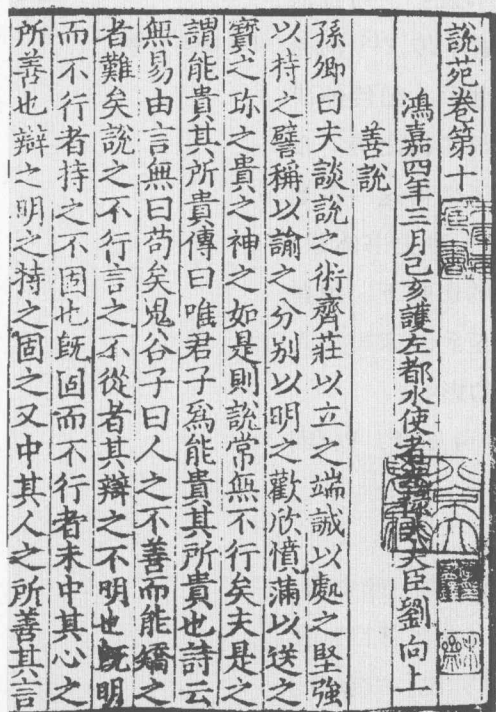 説苑卷第十
鴻嘉四年三月己亥護左都水使者 大臣劉向上
善説
孫卿曰夫談説之術齊莊以立之端誠以處之堅強
以持之譬稱以諭之分别以明之歡欣憤滿以送之
寶之珎之貴之神之如是則説常無不行矣夫是之
謂能貴其所貴傳曰唯君子爲能貴其所貴也詩云
無易由言無曰苟矣鬼谷子曰人之不善而能矯之
者難矣説之不行言之不從者其辯之不明也旣明
而不行者持之不固也旣固而不行者未中其心之
所善也辯之明之持之固之又中其人之所善其言